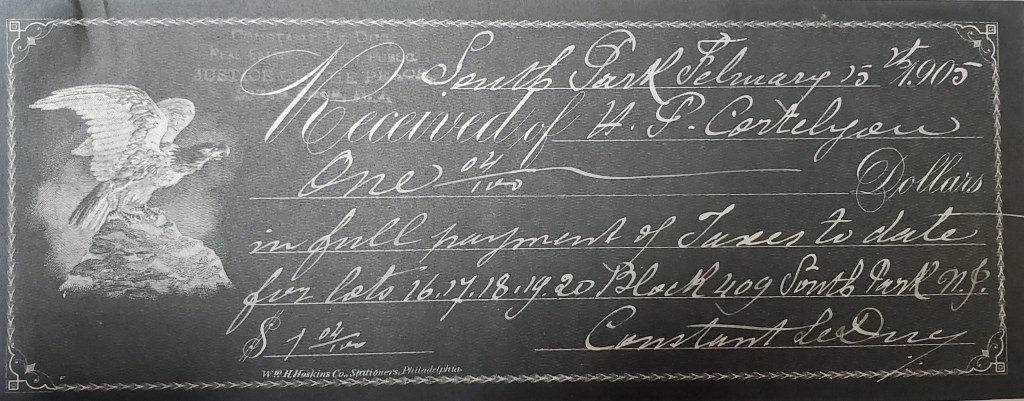 Constant Le Duc
JUSTICE OF THE PEACE
South Park February 15th 1905
Received of H. P. Cortelyou
One 04/100 Dollars
in full payment of Taxes to date
for lots 16.17.18.19.20 Block 409 South Park N.J.
$ 1 04/100 Constant LeDuc
Wm. H. Hoskins Co., Stationers, Philadelphia.